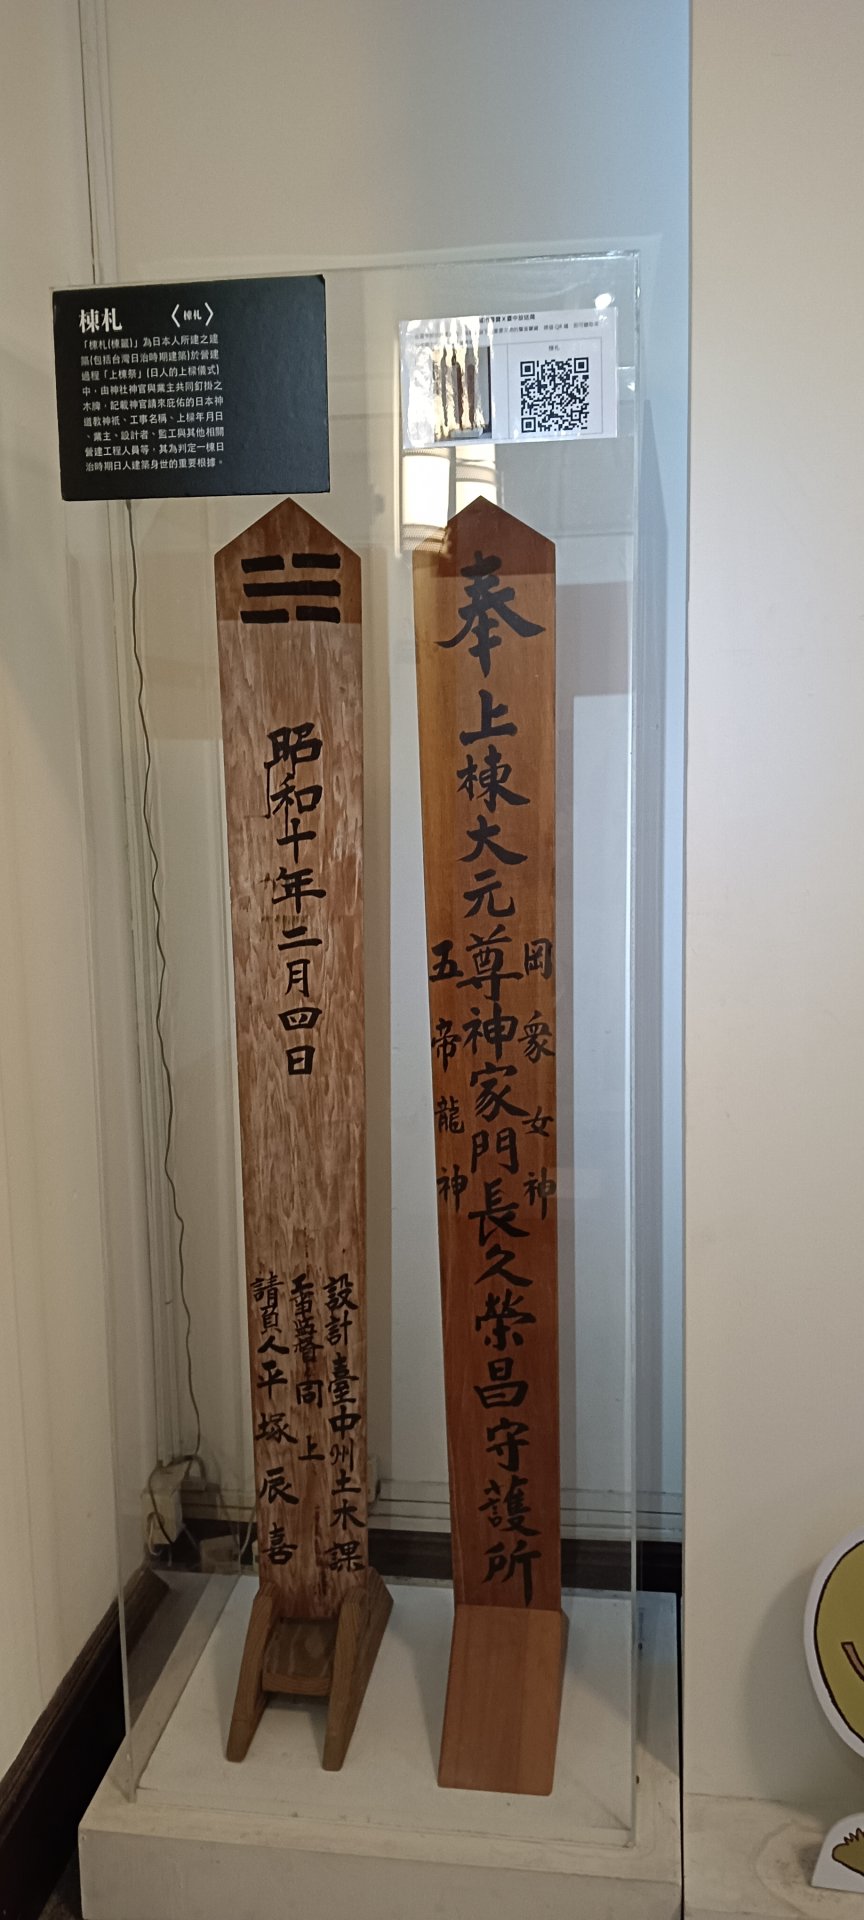 棟札
〈棟札〉
「棟札(棟籤)」為日本人所建之建
築(包括台灣日治時期建築)於營建
過程「上棟祭」(日人的上樑儀式)
中,由神社神官與業主共同釘掛之
木牌,記載神官請來庇佑的日本神
道教神祇、工事名稱、上樑年月日
、業主、設計者、監工與其他相關
營建工程人員等,其為判定一棟日
治時期日人建築身世的重要根據。
棟札
奉上棟大元尊神家門長久榮昌守護所
岡象女神
五帝龍神
昭和十年二月四日
設計臺中州土木課
工事監督同上
請負人平塚辰喜